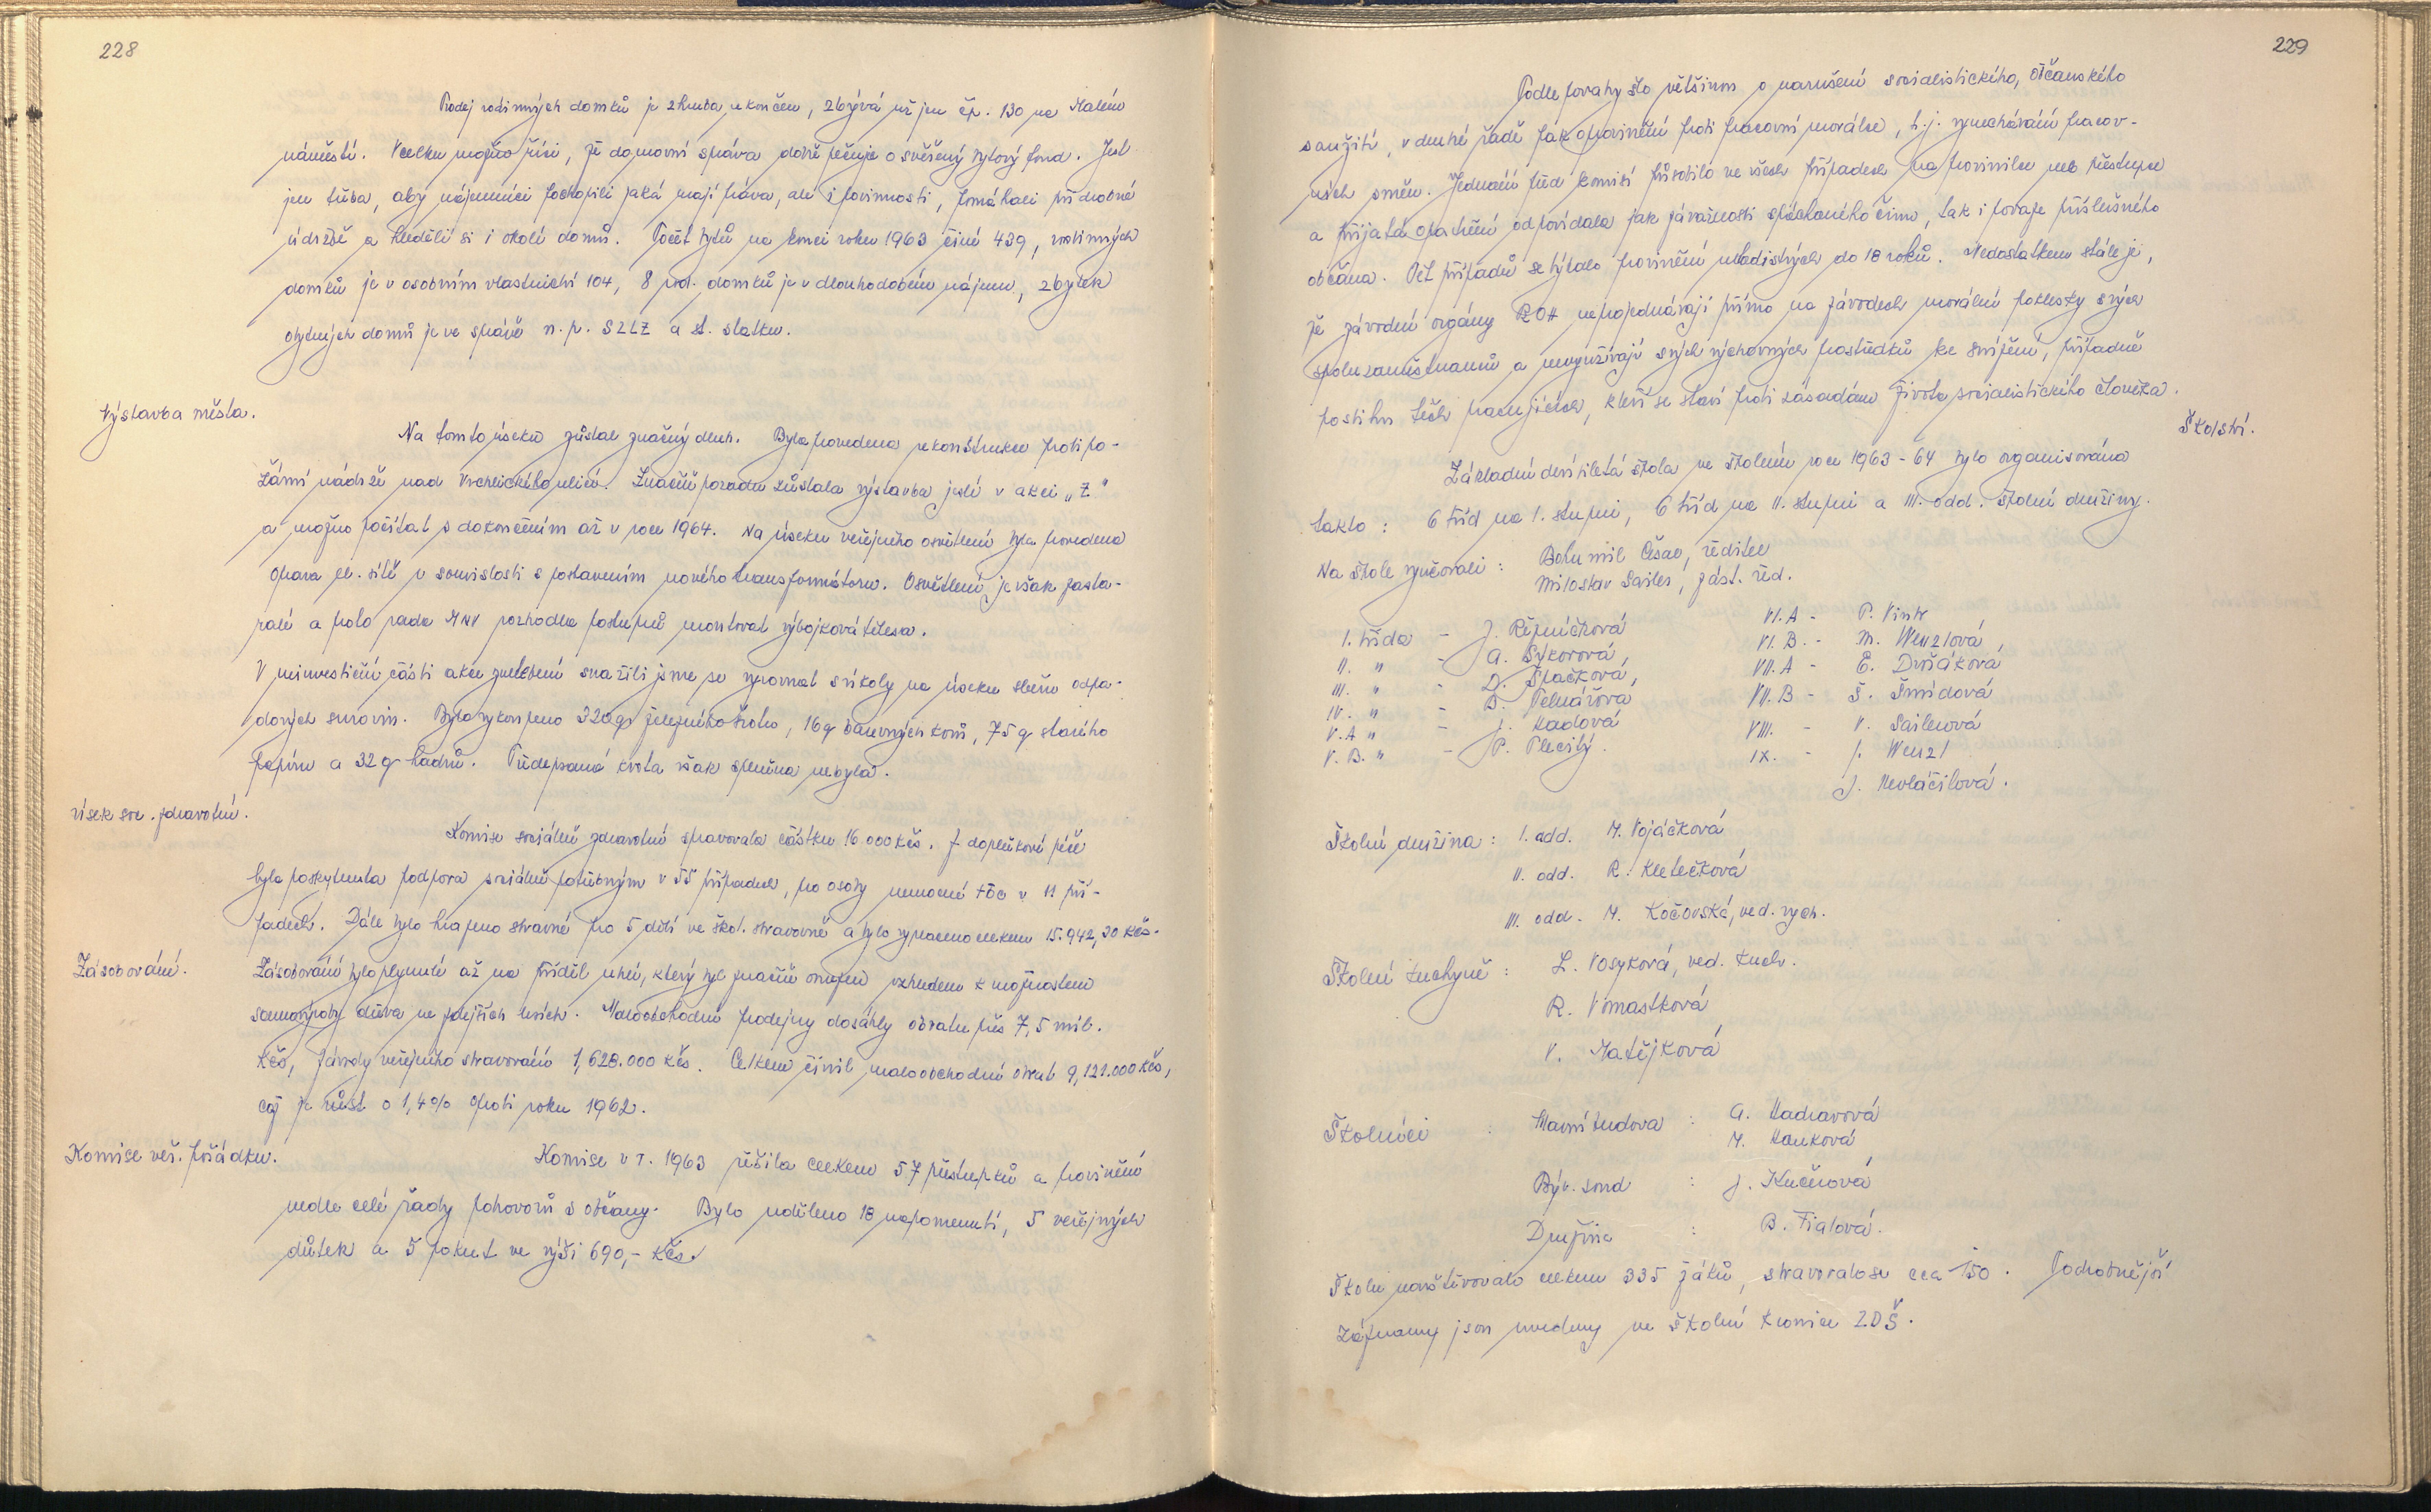 228
Prodej rodinných domků je zhruba ukončen, zbývá už jen čp. 130 na Malém
náměstí. Vcelku možno říci, že domovní správa dobře pečuje o svěřený bytový fond. Jest
jen třeba, aby nájemníci pochopili jaká mají práva, ale i povinnosti, pomáhali při drobné
údržbě a hleděli si i okolí domů. Počet bytů na konci roku 1963 činí 439, rodinných
domků je v osobním vlastnictví 104, 8 rod. domků je v dlouhodobém nájmu, zbytek
obytných domů je ve správě n. p. SZLZ a st. statku.
Výstavba města.
Na tomto úseku zůstal značný dluh. Byla provedena rekonstrukce protipo-
žární nádrže nad Vrchlického ulicí. Značně pozadu zůstala výstavba jeslí v akci „Z"
a možno počítat s dokončením až v roce 1964. Na úseku veřejného osvětlení byla provedena
oprava el. sítě v souvislosti s postavením nového transformátoru. Osvětlení je však zasta-
ralé a proto rada MNV rozhodla postupně montovat výbojková tělesa.
V neinvestiční části akce zvelebení snažili jsme se vyrovnat s úkoly na úseku sběru odpa-
dových surovin. Bylo vykoupeno 320 q železného šrotu, 16 q barevných kovů, 75 q starého
papíru a 32 q hadrů. Předepsaná kvóta však splněna nebyla.
Úsek soc. zdravotní.
Komise sociálně zdravotní spravovala částku 16 000 Kčs. Z doplňkové péče
byla poskytnuta podpora sociálně potřebným v 55 případech, pro osoby nemocné tbc v 11 pří-
padech. Dále bylo hrazeno stravné pro 5 dětí ve škol. stravovně a bylo vyplaceno celkem 15.942,30 Kčs.
Zásobování.
Zásobování bylo plynulé až na příděl uhlí, který byl značně omezen vzhledem k možnostem
samovýroby dřeva ve zdejších lesích. Maloobchodní prodejny dosáhly obratu přes 7,5 mil.
Kčs, závody veřejného stravování 1,628.000 Kčs. Celkem činil maloobchodní obrat 9,121.000 Kčs,
což je růst o 1,4% oproti roku 1962.
Komise veř. pořádku.
Komise v r. 1963 řešila celkem 57 přestupků a provinění
vedle celé řady pohovorů s občany. Bylo uděleno 18 napomenutí, 5 veřejných
důtek a 5 pokut ve výši 690,- Kčs.
229
Podle povahy šlo většinou o narušení socialistického, občanského
soužití, v druhé řadě pak o provinění proti pracovní morálce, t.j. vynechávání pracov-
ních směn. Jednání před komisí působilo ve všech případech na provinilce neb přestupce
a přijatá opatření odpovídala jak závažnosti spáchaného činu, tak i povaze příslušného
občana. Pět případů se týkalo provinění mladistvých do 18 roků. Nedostatkem stále je,
že závodní orgány ROH neprojednávají přímo na závodech morální poklesky svých
spoluzaměstnanců a nevyužívají svých výchovných prostředků ke snížení, případně
postihu těch pracujících, kteří se staví proti zásadám života socialistického člověka.
Školství.
Základní devítiletá škola ve školním roce 1963-64 byla organisována
takto: 6 tříd na I. stupni, 6 tříd na II. stupni a III. odd. školní družiny.
Na škole vyučovali: Bohumil Čšav, ředitel
Miloslav Sailer, zást. řed.
I. třída - J. Řezníčková VI.A - P. Vinkl
II. " - A. Sýkorová, VI.B. - M. Wenzlová,
III. " - D. Špačková, VII.A - E. Dvořáková
IV. " - B. Pelnářová VII.B - Š. Šmídová
V.A " - J. Kadlová VIII. - V. Sailerová
V.B. " - P. Plecitý. IX. - J. Wenzl
J. Nevláčilová.
Školní družina: I. odd. M. Vojáčková
II. odd. R. Kletečková
III. odd. M. Kočovská, ved. vych.
Školní kuchyně: L. Vosyková, ved. kuch.
R. Vomastková
V. Matějková
Školníci: Hlavní budova: A. Hadravová
M. Hanková
Býv. soud: J. Kučerová
Družina: B. Fialová.
Školu navštěvovalo celkem 335 žáků, stravovalo se cca 150. Podrobnější
záznamy jsou uvedeny ve školní kronice ZDŠ.